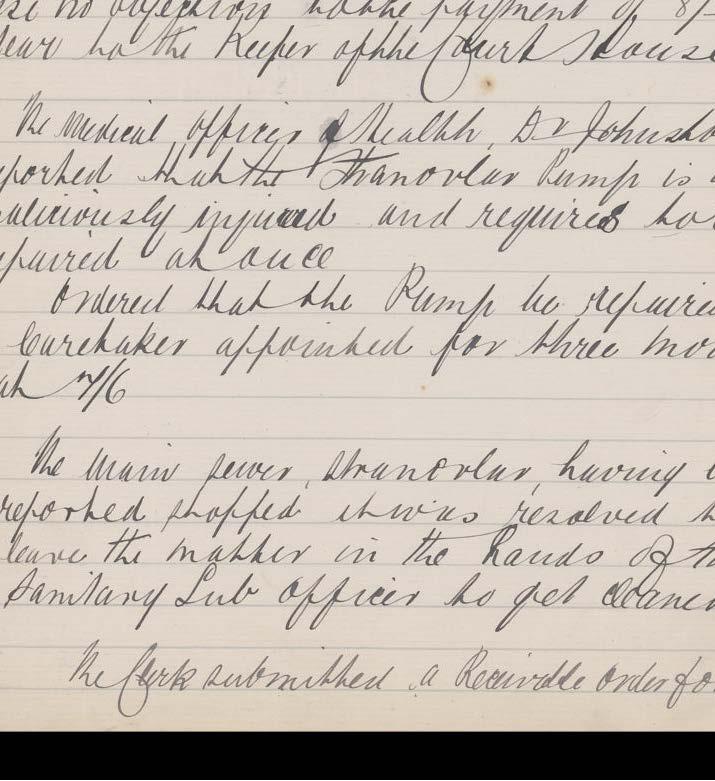 no objection to the payment of 8/-
year to the Keeper of the Court House
The Medical Officer of Health, Dr Johnsto
ported that the Stranorlar Pump is
aliciously injured and requires to
paired at once
Ordered that the Pump be repaire
Caretaker appointed for three mo
at 7/6
The Main sewer, Stranorlar, having
reported stopped it was resolved t
leave the matter in the hands of th
Sanitary Sub Officer to get cleane
The Clerk submitted a Receivable Order fo